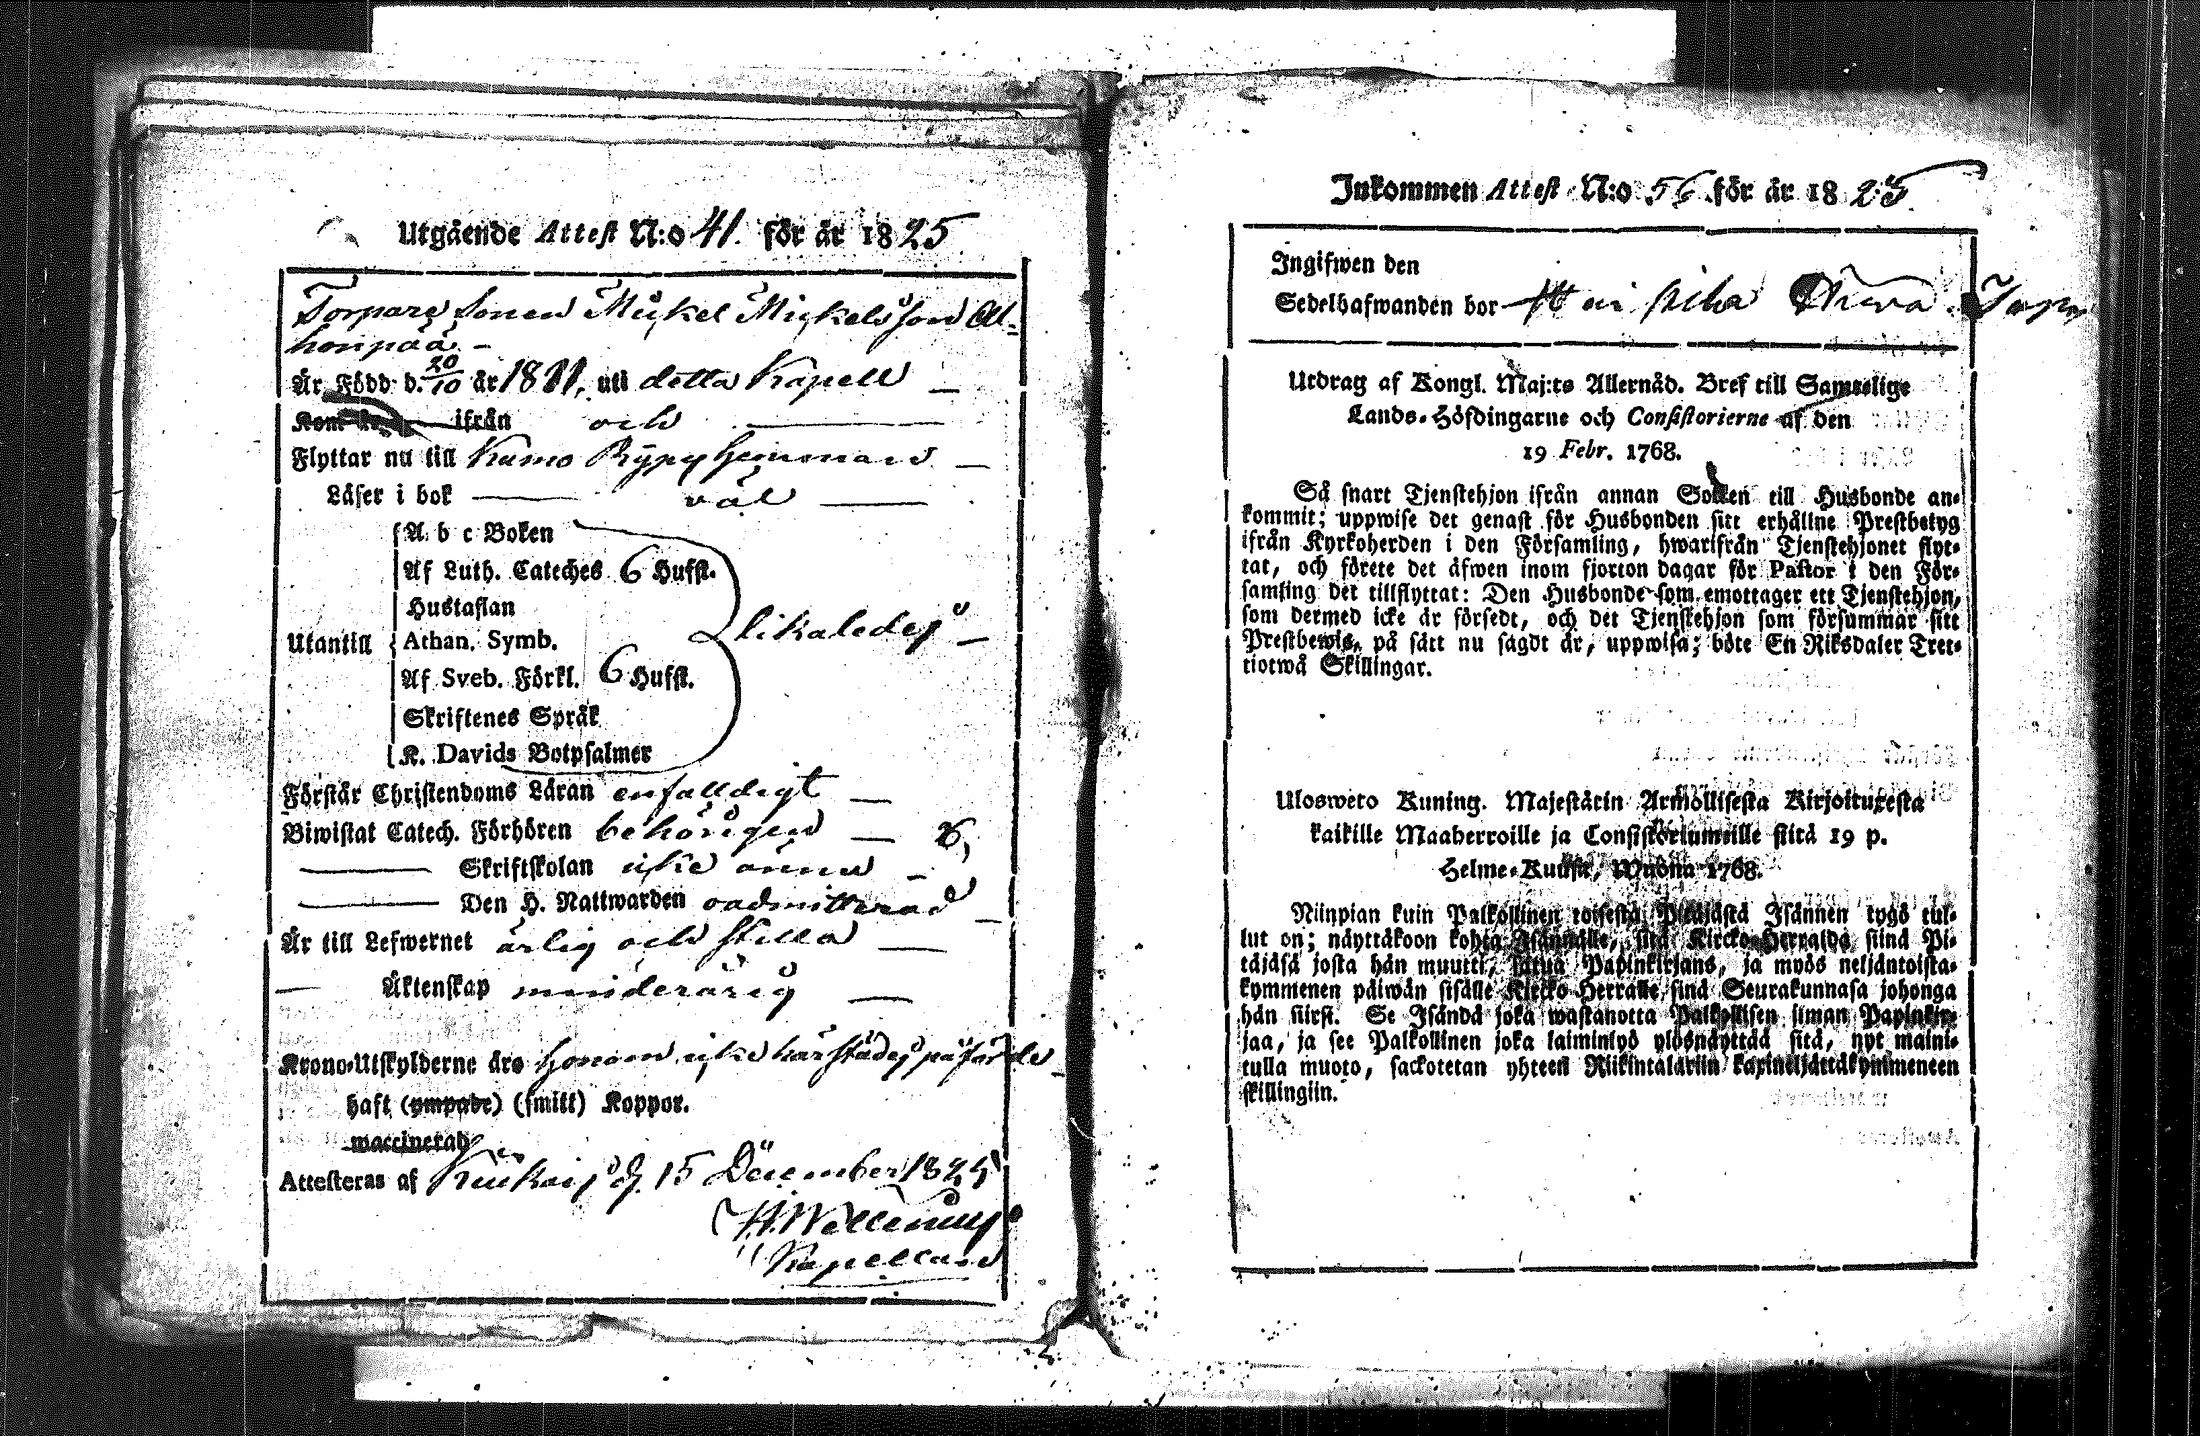 Utgående Attest N:o 41. för år 1825
Torpare sonen Mickel Mickelsson Al-
honpää. –
Är Född d. 20/10 år 1811, uti detta Kapell —
Kom ifrån och —
Flyttar nu till Kumo Rypy hemman —
Läser i bok — väl —
A b c Boken
Af Luth. Cateches 6 Hufst.
Hustaflan
Utantill Athan. Symb. likaledes —
Af Sveb. Förkl. 6 Hufst.
Skriftenes Språk
K. Davids Botpsalmer
Förstår Christendoms Läran enfalldigt —
Biwistat Catech. Förhören behörigen —
— Skriftskolan icke ännu —
— Den H. Nattwarden oadmitterad —
Är till Lefwernet ärlig och stilla —
— Äktenskap minderårig —
Krono-Utskylderne äro honom icke härstädes påförde
haft (ympade) (smitt) Koppor.
waccinerad
Attesteras af d. 15 December 1825
Kapellan
Inkommen Attest N:o 56 för år 1825.
Ingifwen den
Sedelhafwanden bor
Utdrag af Kongl. Maj:ts Allernåd. Bref till Samtelige
Lands-Höfdingarne och Consistorierne af den
19 Febr. 1768.
Så snart Tjenstehjon ifrån annan Socken till Husbonde an-
kommit; uppwise det genast för Husbonden sitt erhållne Prestbetyg
ifrån Kyrkoherden i den Församling, hwarifrån Tjenstehjonet flyt-
tat, och förete det äfwen inom fjorton dagar för Pastor i den För-
samling det tillflyttat: Den Husbonde som emottager ett Tjenstehjon,
som dermed icke är försedt, och det Tjenstehjon som försummar sitt
Prestbewis, på sätt nu sagdt är, uppwisa; böte En Riksdaler Tret-
tiotwå Skillingar.
Ulosweto Kuning. Majestätin Armollisesta Kirjoituxesta
kaikille Maaherroille ja Consistoriumeille siitä 19 p.
Helme-Kuusa, Wuonna 1768.
Niinpian kuin Palkollinen toisesta Pitäjästä Isännen tygö tul-
lut on; näyttäkoon kohta Isännälle, sitä Kircko-Herralda siinä Pi-
täjäsä josta hän muutti, saatua Papinkirjans, ja myös neljäntoista-
kymmenen päiwän sisälle Kircko-Herralle siinä Seurakunnasa johonga
hän siirsi. Se Isändä joka wastanotta Palkollisen ilman Papinkir-
jaa, ja see Palkollinen joka laiminlyö ylösnäyttää sitä, nyt maini-
tulla muoto, sackotetan yhteen Riikintaalariin kaxineljättäkymmeneen
skillingiin.